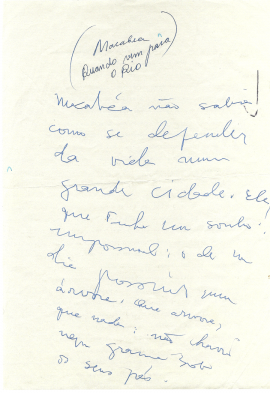 (Macabea
Quando vem para
o Rio)
Macabéa não sabia
como se defender
da vida numa
grande cidade. Ela
que tinha um sonho
impossível: o de um
dia possuir uma
árvore. Que árvore,
que nada: não havia
nem grama sob
os seus pés.